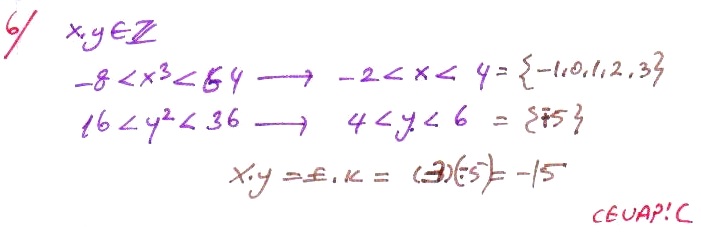 6/ x,y∈Z
-8<x³<64 → -2<x<4 = {-1,0,1,2,3}
16<y²<36 → 4<y<6 = {∓5}
x.y = E.K = (3)(-5) = -15
CEVAP!C